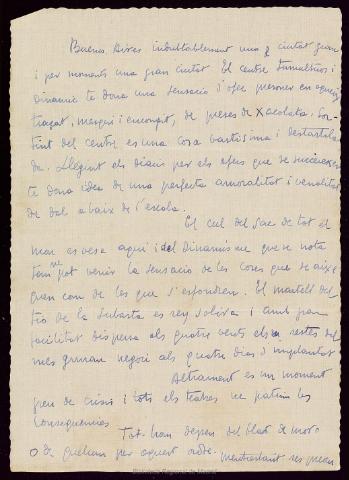 Buenos Aires indubtablement una ciutat gran
i per moments una gran ciutat El centre tumultuos i
Dinamic te dona una sensació d'ofec presoner en aquest
traçat, mesquí i encongit, de preses de xacolata. Sor-
tint del centre es una cosa vastissima i destartala
da. Llegint els diaris per els afers que se succeeixen
te dona idea de una perfecta amoralitat i venalitat
de dal abaix de l'escala.
El cul del sac de tot el
mon es vesa aqui i del Dinamisme que se nota
tan pot venir la sensació de les coses que se aixe
quen com de les que s'esfondren. El martell del
de la subasta es rey soliva i amb gran
facilitat dispersa als quatre vents els restes del
mes gran negoci als quatre dias d'implantat
Altrament es un moment
ple de crisis i tots els teatres ne patim les
consequencies.
Tot-hom depen del blat de moro
o de quelcom per aquest ordre. mentrestant es